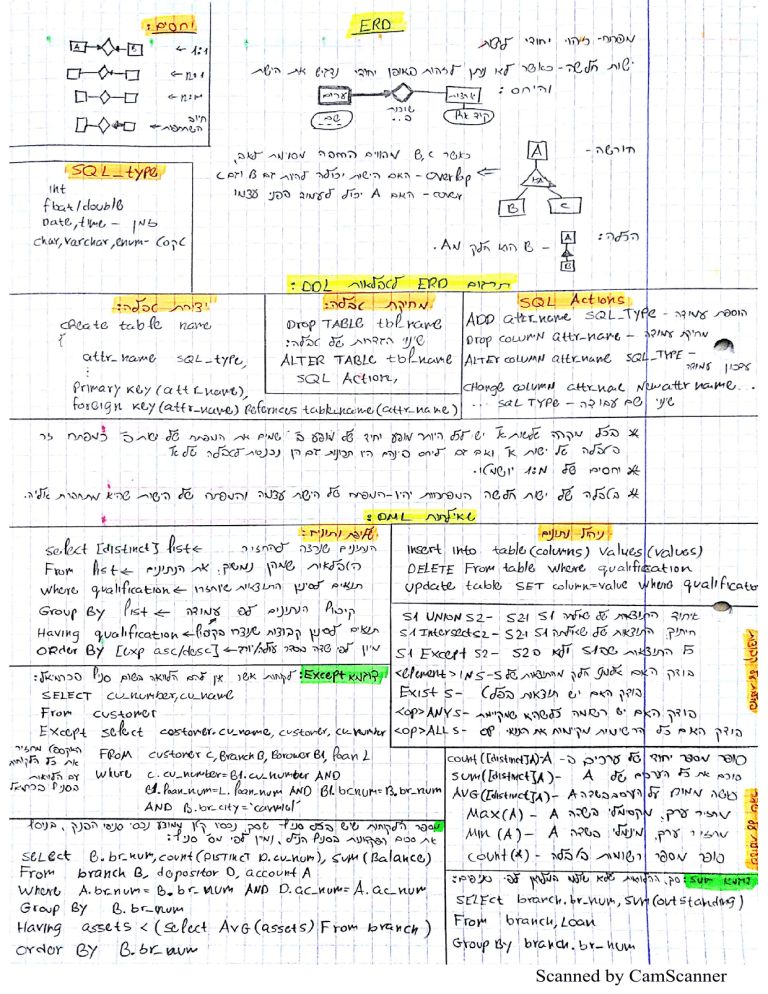 יחסים:
A B ← 1:1
← n:1
← n:m
← חיוב השתתפות
ERD
מפתח- זיהוי יחודי לישות
ישות חלשה- כאשר לא ניתן לזהות באופן יחודי נדגיש את הישות
והיחס:
ערים
שוכנת ב..
ארצות
שם
A
B
C
ISA
הורשה -
כאשר B, C מהווים הרחבה מסוימת לאב,
overlap - האם הישות יכולה להיות גם B וגם C
cover - האם A יכול לעמוד בפני עצמו
הכלה:
A
B
- B הוא חלק מA.
SQL_type
int
float/double
Date, time - זמן
char, varchar, enum-
תרגום ERD לטבלאות DDL:
יצירת טבלה:
create table name
{
attr_name SQL_type,
⋮
Primary key (attr_name),
foreign key (attr_name) References table_name (attr_name)
מחיקת טבלה:
Drop TABLE tbl_name
שינוי הגדרות של טבלה:
ALTER TABLE tbl_name
SQL Action,
SQL Actions
ADD attr_name SQL_TYPE - הוספת עמודה
Drop column attr_name - מחיקת עמודה
ALTER column attr_name SQL_TYPE -
עדכון עמודה
change column attr_name New attr name ...
... SQL TYPE - שינוי שם עמודה
* בכל מקרה שלישות א' יש לכל היותר מופע יחיד של מופע ב' שמים את המפתח של ישות ב' כמפתח זר
בטבלה של ישות א' ואם גם ליחס ביניהם היו תכונות גם הן נכנסות לטבלה של א'
* יחסים של n:1
* בטבלה של ישות חלשה המפתחות יהיו- המפתח של הישות עצמה והמפתח של הישות שהיא מתחברת אליה.
שאילתות DML:
שליפת נתונים:
select [distinct] list ← הנתונים שנרצה להחזיר
From list ← הטבלאות שמהן נמשוך את הנתונים
where qualification ← תנאים לסינון התוצאות שיוחזרו
Group By list ← קיבוץ הנתונים לפי עמודה
Having qualification ← תנאים לסינון קבוצות שנוצרו
ORder By [exp asc/desc] ← מיון לפי שדה בסדר עולה/יורד
ניהול נתונים
insert into table (columns) Values (values)
DELETE From table where qualification
update table SET column=value where qualification
S1 UNION S2 - איחוד התוצאות של שאילתה S1 ו S2
S1 Intersect S2 - חיתוך התוצאות של שאילתה S1 ו S2
S1 Except S2 - כל התוצאות שבS1 ולא בS2
<element> IN S - בודק האם אלמנט חלק מתוצאות של S
Exist S - בודק האם יש תוצאות בכלל
<op> ANY S - בודק האם יש רשומה כלשהיא שמקיימת
<op> ALL S - בודק האם כל הרשומות מקיימות את תנאי op
דוגמא Except: לקוחות אשר אין להם הלוואה בשום סניף
SELECT cu_number, cu_name
From customer
Except select costomer.cu_name, customer, cu_number
FROM customer C, Branch B, Borower B1, loan L
where C.cu_number=B1.cu_number AND
B1.loan_num=L.loan_num AND B1.bcnum=B.br_num
AND B.br_city="carmiel"
count([distinct]A) - סופר מספר יחודי של ערכים ב- A
SUM([distinct]A) - סוכם את כל הערכים של A
AVG([distinct]A) - עושה ממוצע על הערכים בשדה A
Max(A) - מחזיר ערך מקסימלי בשדה A
Min (A) - מחזיר ערך מינימלי בשדה A
count(*) - סופר מספר רשומות בטבלה
מספר הלקוחות שיש בכל סניף
select B.br_num, count(DISTINCT D.cu_num), SUM (Balance)
From branch B, depositor D, account A
Where A.br_num = B.br_num AND D.ac_num = A.ac_num
Group By B.br_num
Having assets < (select AVG (assets) From branch)
order BY B.br_num
דוגמא SUM:
SELECT branch.br_num, SUM(outstanding)
From branch, Loan
Group By branch.br_num
Scanned by CamScanner